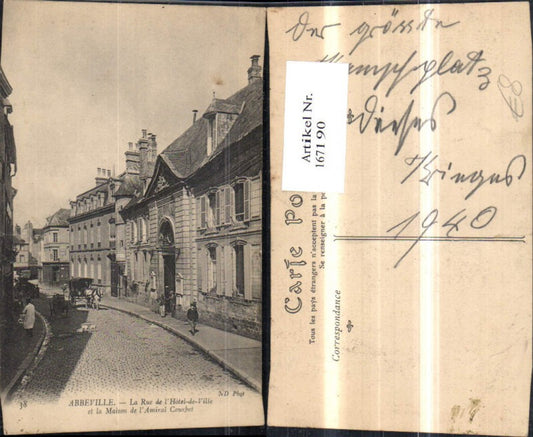 38 ABBEVILLE. — La Rue de l'Hôtel-de-Ville
et la Maison de l'Amiral Courbet
ND Phot
Der grösste
Kampfplatz
dieses
Krieges
1940
€8
Artikel Nr.
167190
Carte Po
Tous les pays étrangers n'acceptent pas la
Se renseigner à la p
Correspondance